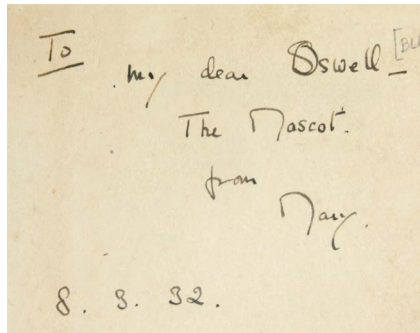 To
my dear Oswell _
The Mascot.
from
Mary.
8. 3. 32.